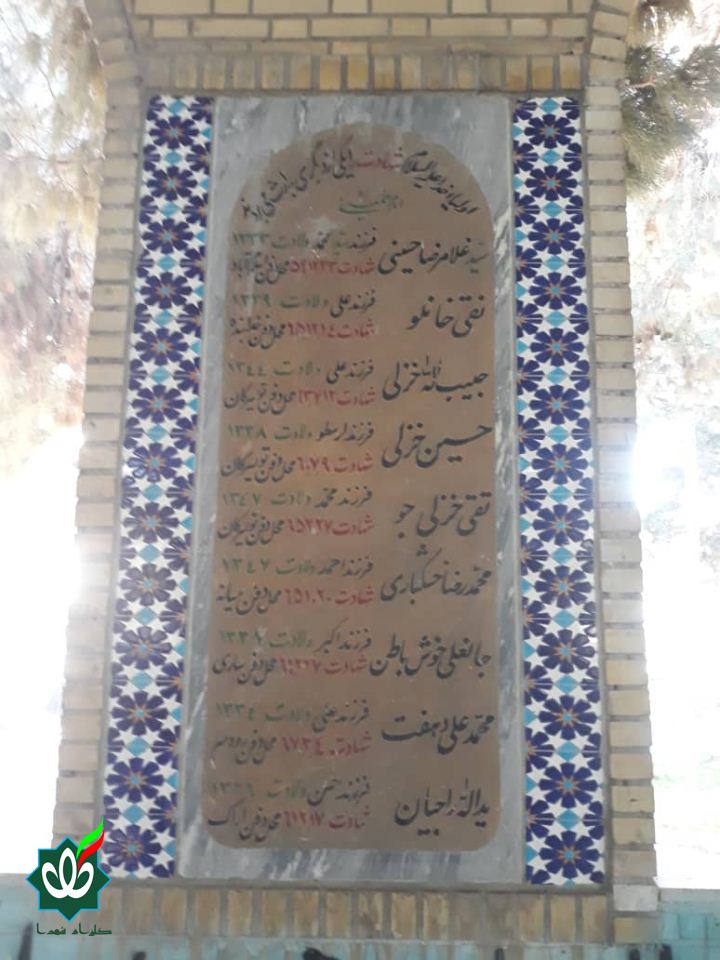 شهادت
سید غلامرضا حسینی
فرزند سید محمد ولادت ۱۳۳۳
شهادت ۵۹۱۲۲۳ محل دفن
نقی خانلو
فرزند علی ولادت ۱۳۳۹
شهادت ۶۵۱۲۱۴ محل دفن
حبیب الله خزلی
فرزند علی ولادت ۱۳۴۴
شهادت ۶۳۷۱۲ محل دفن تویسرکان
حسین خزلی
فرزند ولادت ۱۳۳۸
شهادت ۶۰۷۹ محل دفن تویسرکان
تقی خزلی جو
فرزند محمد ولادت ۱۳۴۷
شهادت ۶۵۲۲۷ محل دفن تویسرکان
محمدرضا خشکباری
فرزند احمد ولادت ۱۳۴۷
شهادت ۶۵۱۰۲۰ محل دفن میانه
جانعلی خوش باطن
فرزند اکبر ولادت
شهادت محل دفن ساری
محمد علی دهفت
فرزند علی ولادت ۱۳۳۴
شهادت ۶۷۳۴ محل دفن رودسر
یدالله راجیان
فرزند حسن ولادت
شهادت ۶۱۲۱۷ محل دفن اراک
گلزار شهدا